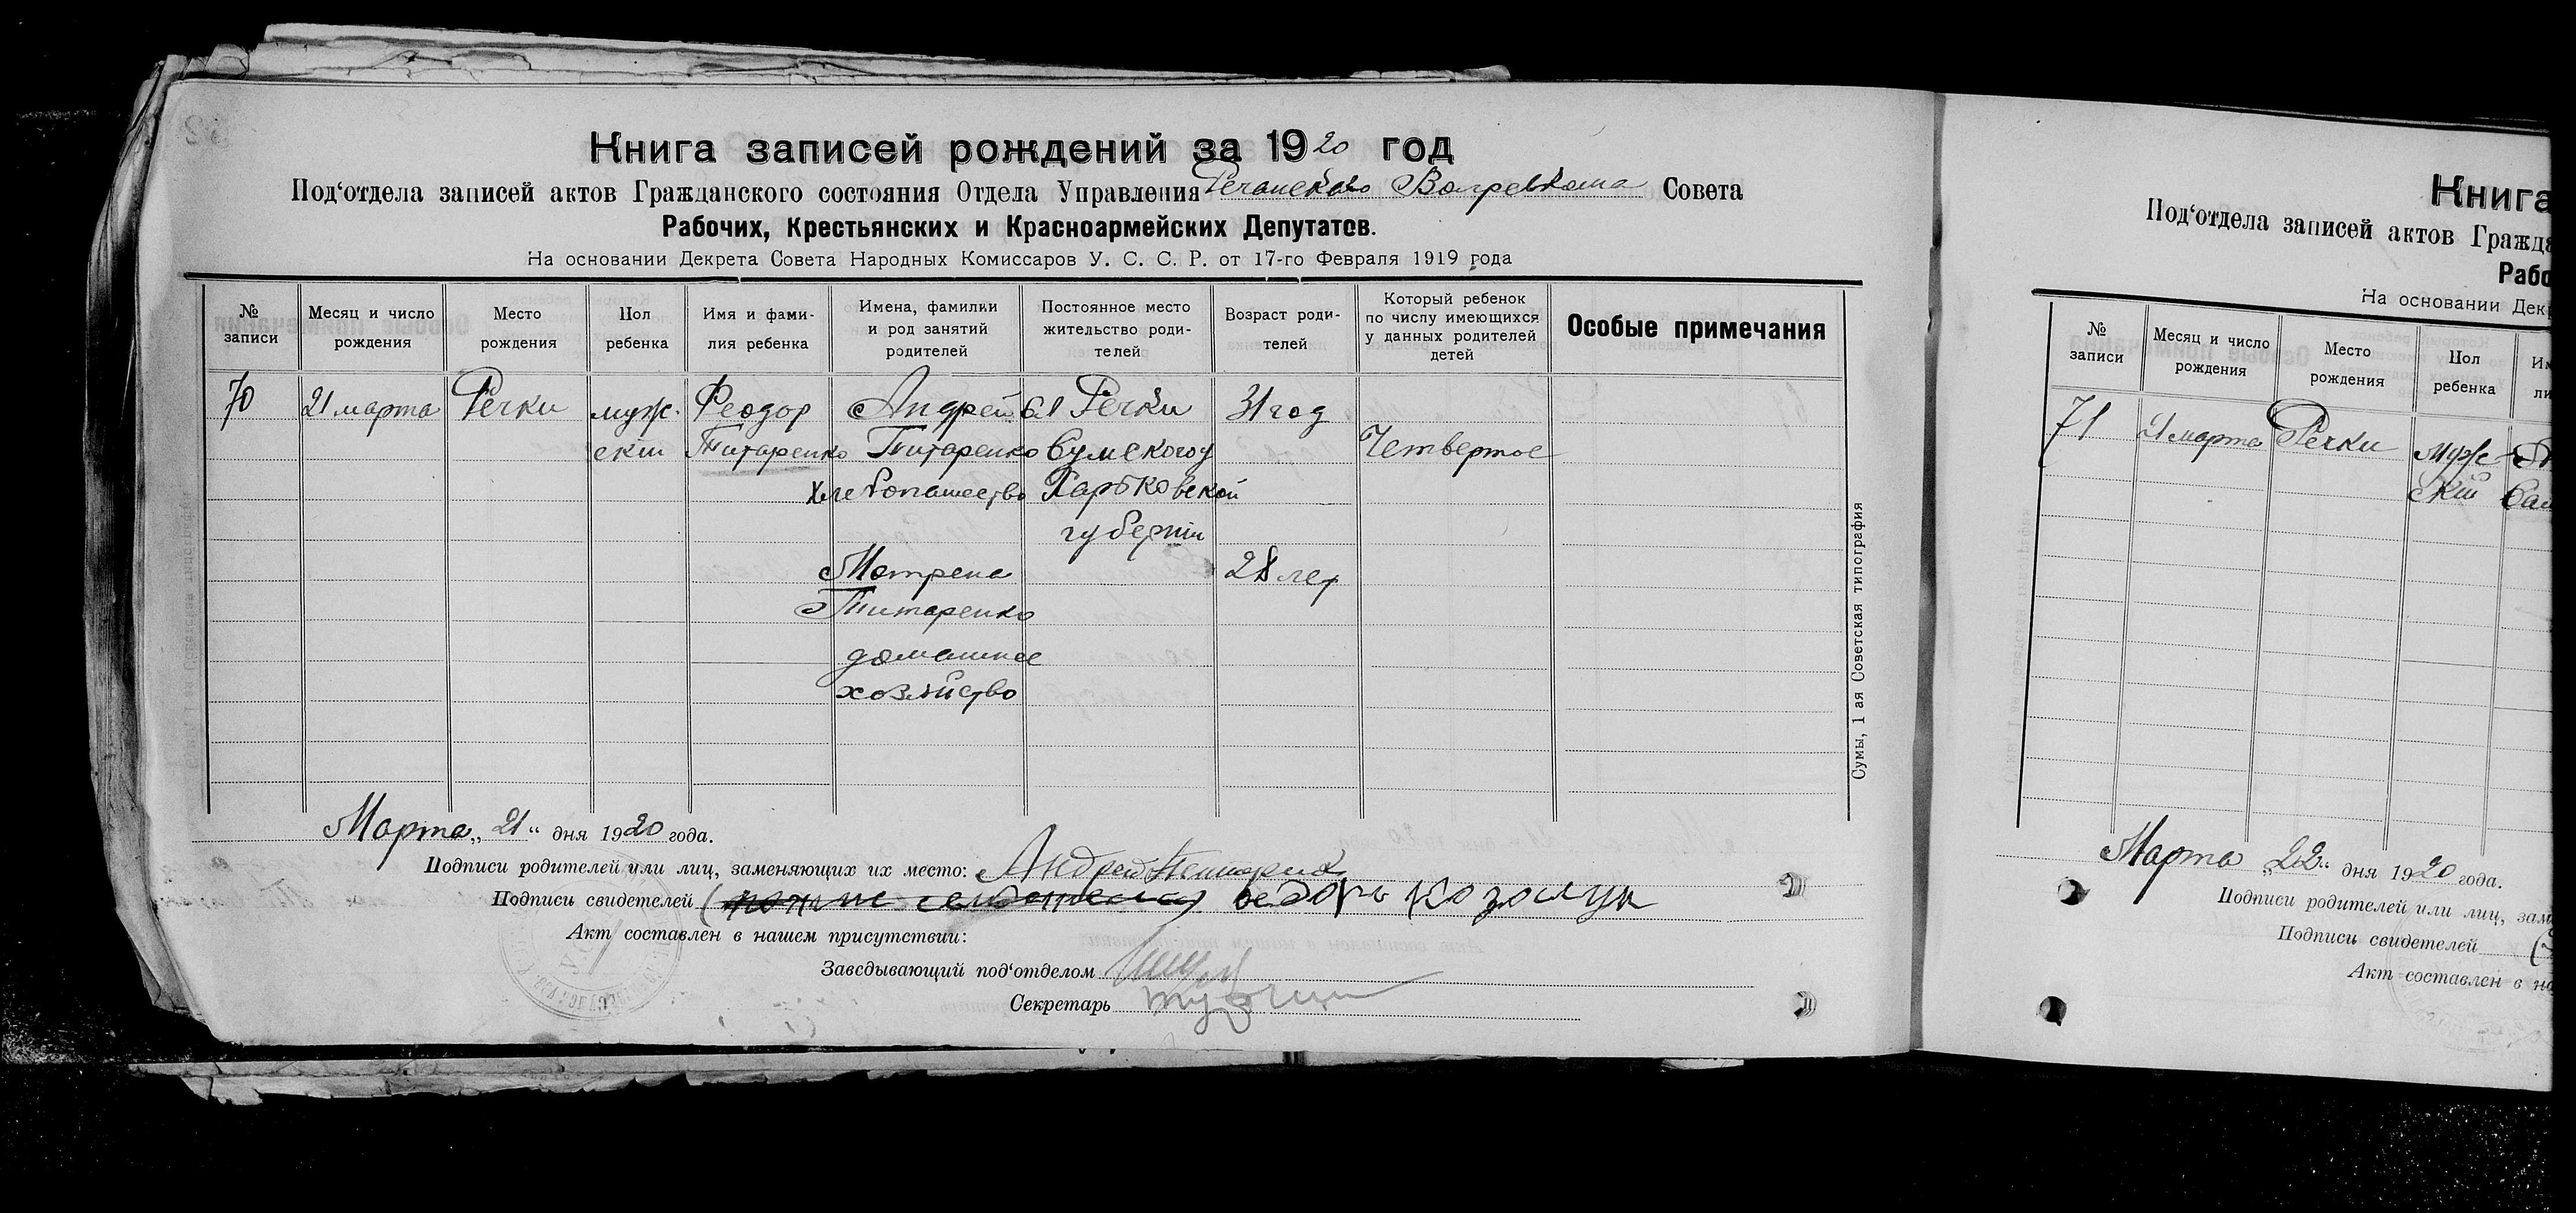 Книга записей рождений за 1920 год
Под‘отдела записей актов Гражданского состояния Отдела Управления Речанского Волревкома Совета
Рабочих, Крестьянских и Красноармейских Депутатов.
На основании Декрета Совета Народных Комиссаров У. С. С. Р. от 17-го Февраля 1919 года
№ записи
Месяц и число рождения
Место рождения
Пол ребенка
Имя и фами-
лия ребенка
Имена, фамилии
и род занятий
родителей
Постоянное место
жительство роди-
телей
Возраст роди-
телей
Который ребенок
по числу имеющихся
у данных родителей
детей
Особые примечания
70 21 марта Речки муж- Феодор Андрей Сл Речки 31 год
ский Титаренко Титаренко Сумского у Четвертое
Хлебопашество Харьковской
губернии
Матрена 28 лет
Титаренко
домашнее
хозяйство
Сумы, 1 ая Советская типография
Марта „21“ дня 1920 года.
Подписи родителей или лиц, заменяющих их место: Андрей
Подписи свидетелей Федоръ Козолуп
Акт составлен в нашем присутствии:
Заведывающий под‘отделом
Секретарь
Книга
Под‘отдела записей актов Гражда
Рабо
На основании Дек
№
записи
Месяц и число
рождения
Место
рождения
Пол
ребенка
71 21 марта Речки муж-
ский
Марта „22“ дня 1920 года.
Подписи родителей или лиц, зам
Подписи свидетелей
Акт составлен в на